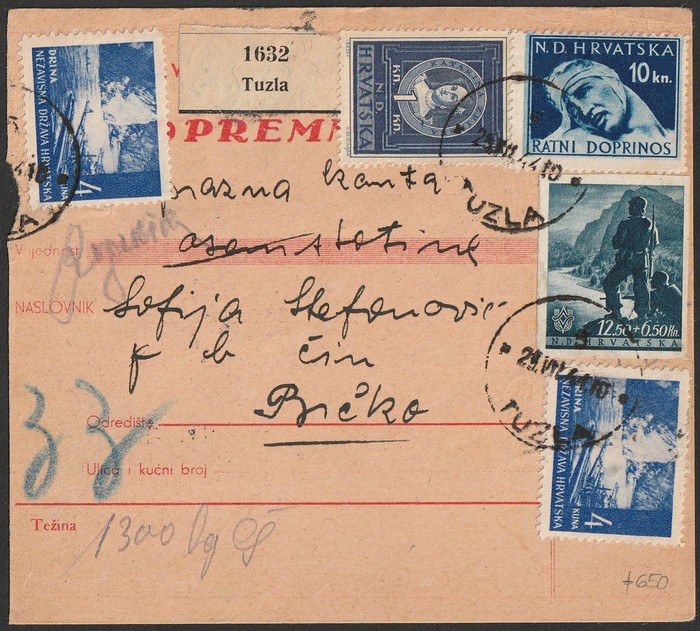 1632
Tuzla
DRINA
NEZAVISNA DRŽAVA HRVATSKA
4
KUNA
1
Kn.
N.D.
HRVATSKA
Kn.
N.D. HRVATSKA
10 kn.
RATNI DOPRINOS
TUZLA
OPREMN
prazna kanta
Vrijednost
NASLOVNIK
Sofija Stefanović
12.50+6.50 Kn.
N.D. HRVATSKA
25.VII.44.10
TUZLA
Odredište
Brčko
DRINA
NEZAVISNA DRŽAVA HRVATSKA
4
KUNA
Ulica i kućni broj
Težina
1300
+650